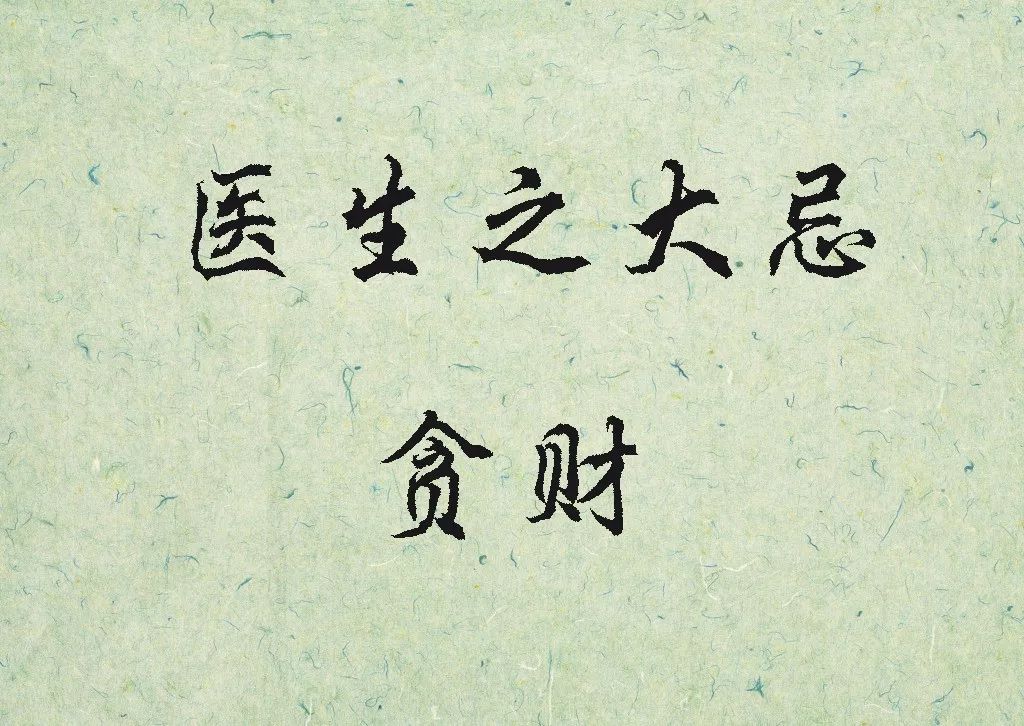 医生之大忌
贪财